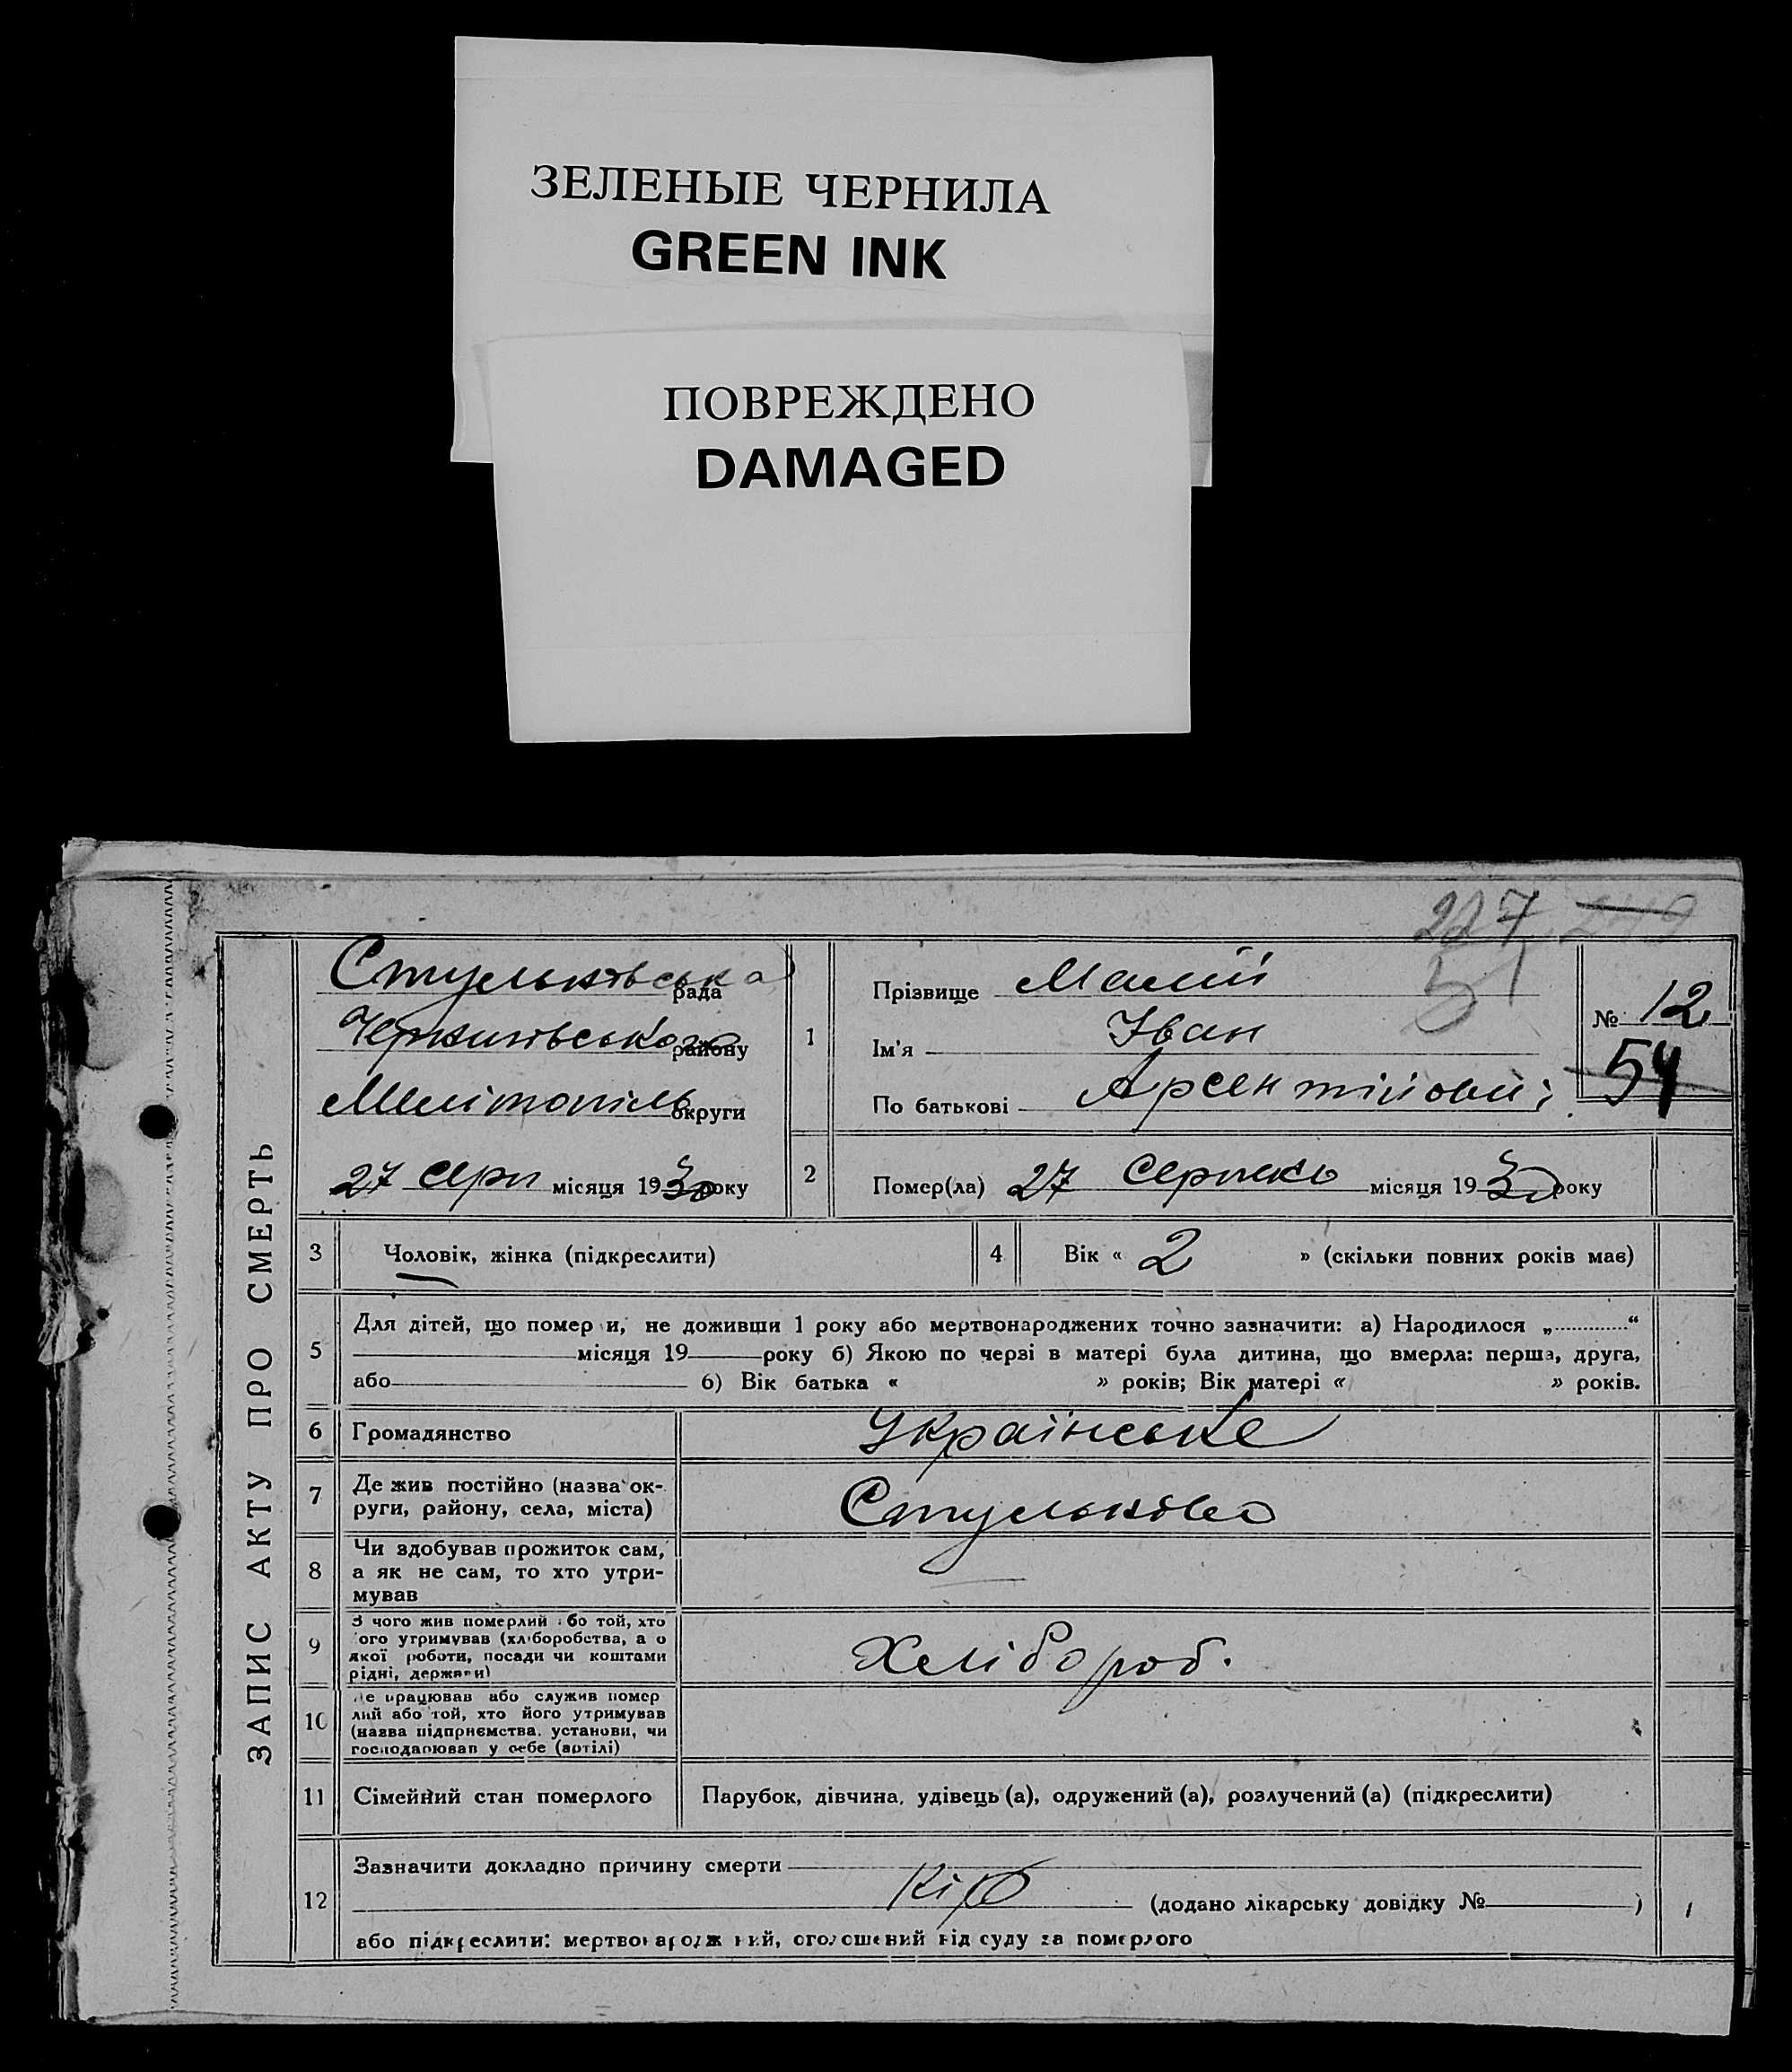 ЗЕЛЕНЫЕ ЧЕРНИЛА
GREEN INK
ПОВРЕЖДЕНО
DAMAGED
227
51
ЗАПИС АКТУ ПРО СМЕРТЬ
Стульнівська рада
району
Мелітопіль округи
27 серп місяця 1930 року
1
Прізвище Малий
Ім'я Іван
По батькові
№ 12
54
2
Помер(ла) 27 Серпня місяця 1930 року
3 Чоловік, жінка (підкреслити)
4 Вік « 2 » (скільки повних років має)
5 Для дітей, що помер и, не доживши 1 року або мертвонароджених точно зазначити: а) Народилося „ “
місяця 19 року б) Якою по черзі в матері була дитина, що вмерла: перша, друга,
або б) Вік батька « » років; Вік матері « » років.
6 Громадянство Українське
7 Де жив постійно (назва ок-
руги, району, села, міста) Стульніво
8 Чи здобував прожиток сам,
а як не сам, то хто утри-
мував
9 З чого жив померлий бо той, хто
ого утримував (хліборобства, а о
якої роботи, посади чи коштами
рідні, держави)
Хлібороб.
10 е працював або служив помер
лий або той, хто його утримував
(назва підприємства, установи, чи
господарював у себе (артілі)
11 Сімейний стан померлого Парубок, дівчина, удівець (а), одружений (а), розлучений (а) (підкреслити)
12 Зазначити докладно причину смерти
Кір (додано лікарську довідку № )
або підкреслити: мертвонароджений, оголошений від суду за померлого